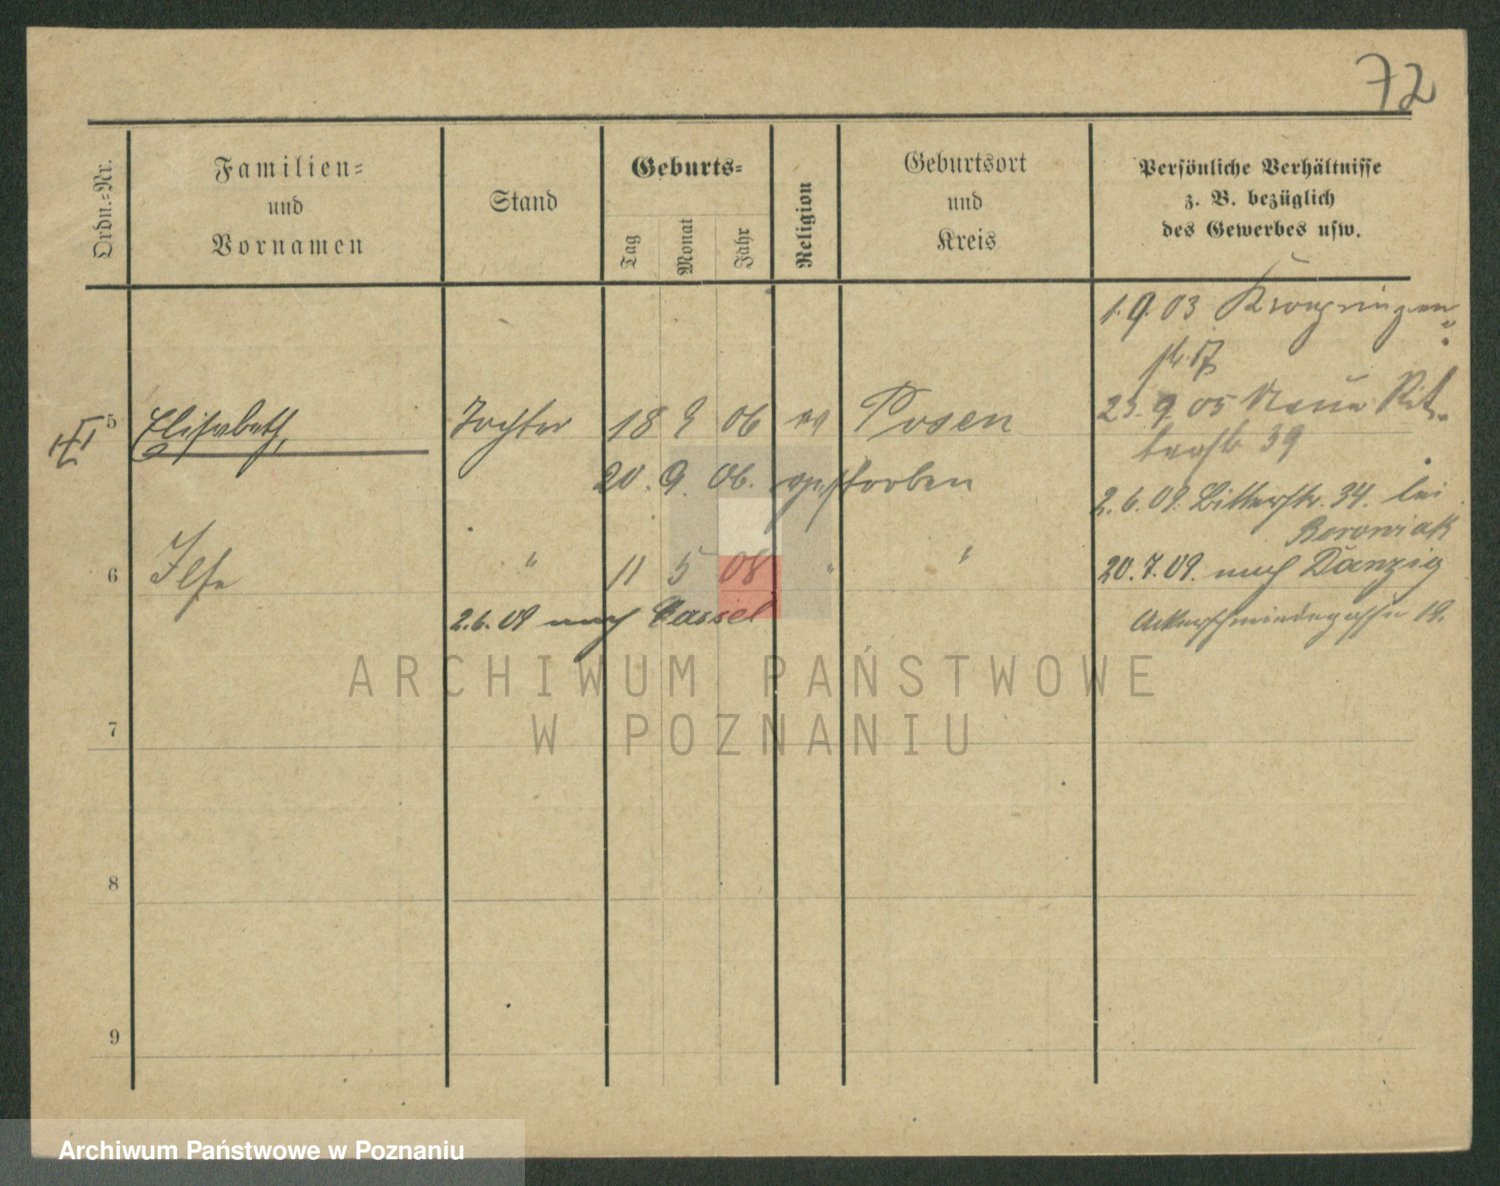 72
Ordn.-Nr.
Familien-
und
Vornamen
Stand
Geburts-
Tag
Monat
Jahr
Religion
Geburtsort
und
Kreis
Persönliche Verhältnisse
z. B. bezüglich
des Gewerbes usw.
1.9.03 Kronprinzen
str. 17
5 Elisabeth, Tochter 18 9 06 ev Posen
23.9 05 Neue Rit-
terstr 39
20. 9. 06. gestorben
2.6.09. Bitterstr. 34. bei
Borowiak
6 Ilse " 11 5 08 " "
20.7.09. nach Danzig
2.6.09 nach Cassel
Ackerschmiedegasse 19.
ARCHIWUM PAŃSTWOWE
W POZNANIU
7
8
9
Archiwum Państwowe w Poznaniu